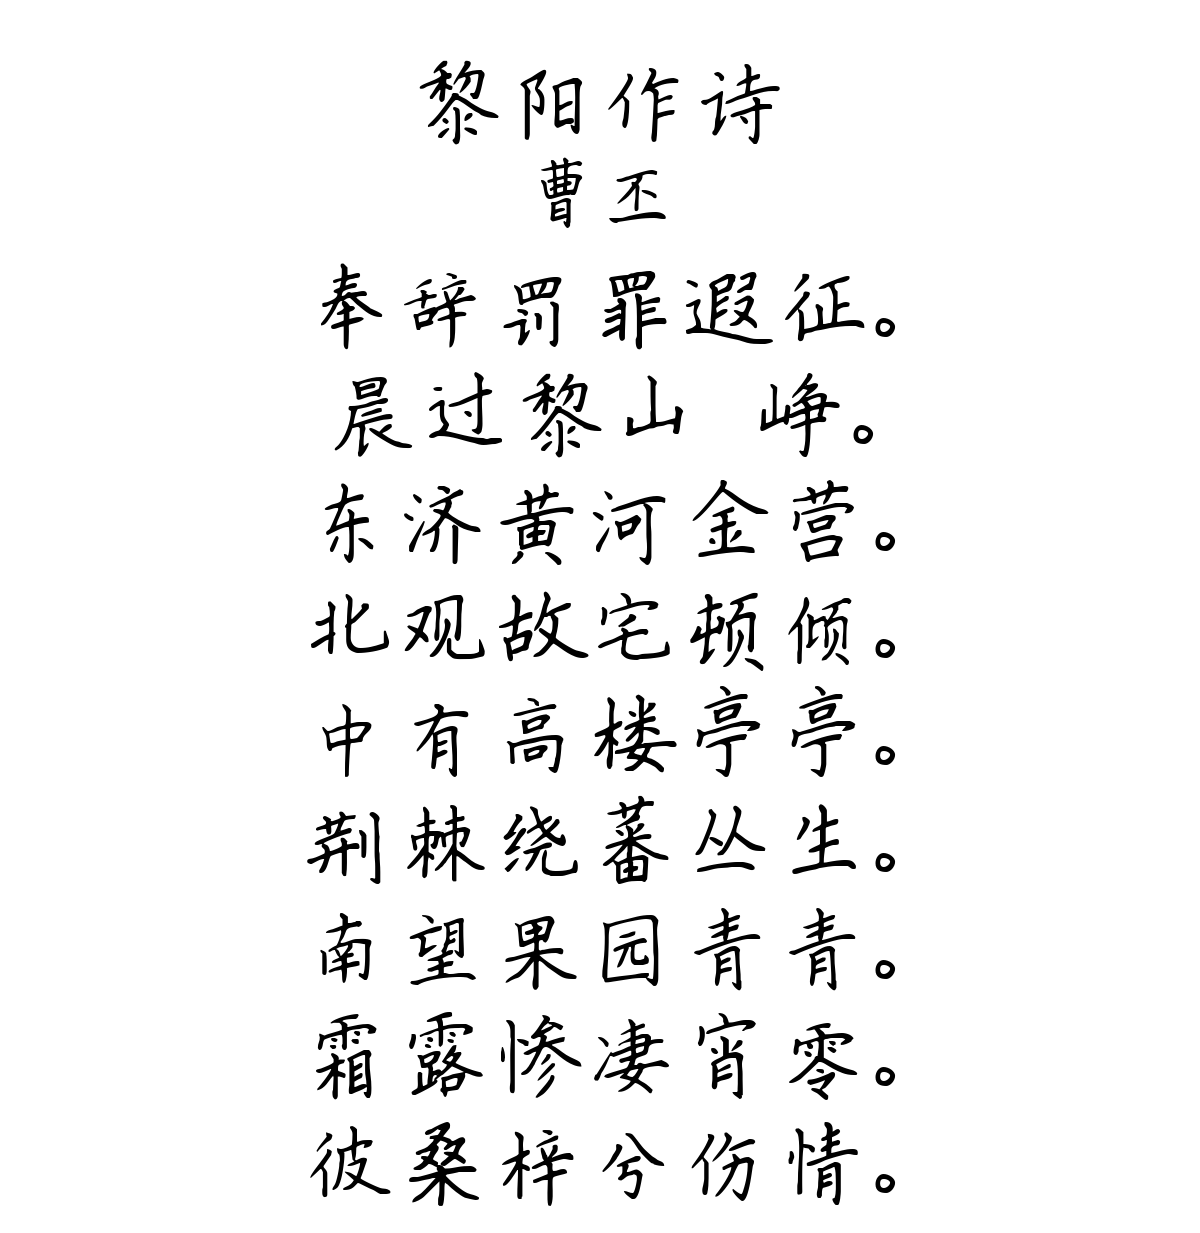 黎阳作诗
曹丕
奉辞罚罪遐征。
晨过黎山 峥。
东济黄河金营。
北观故宅顿倾。
中有高楼亭亭。
荆棘绕蕃丛生。
南望果园青青。
霜露惨凄宵零。
彼桑梓兮伤情。